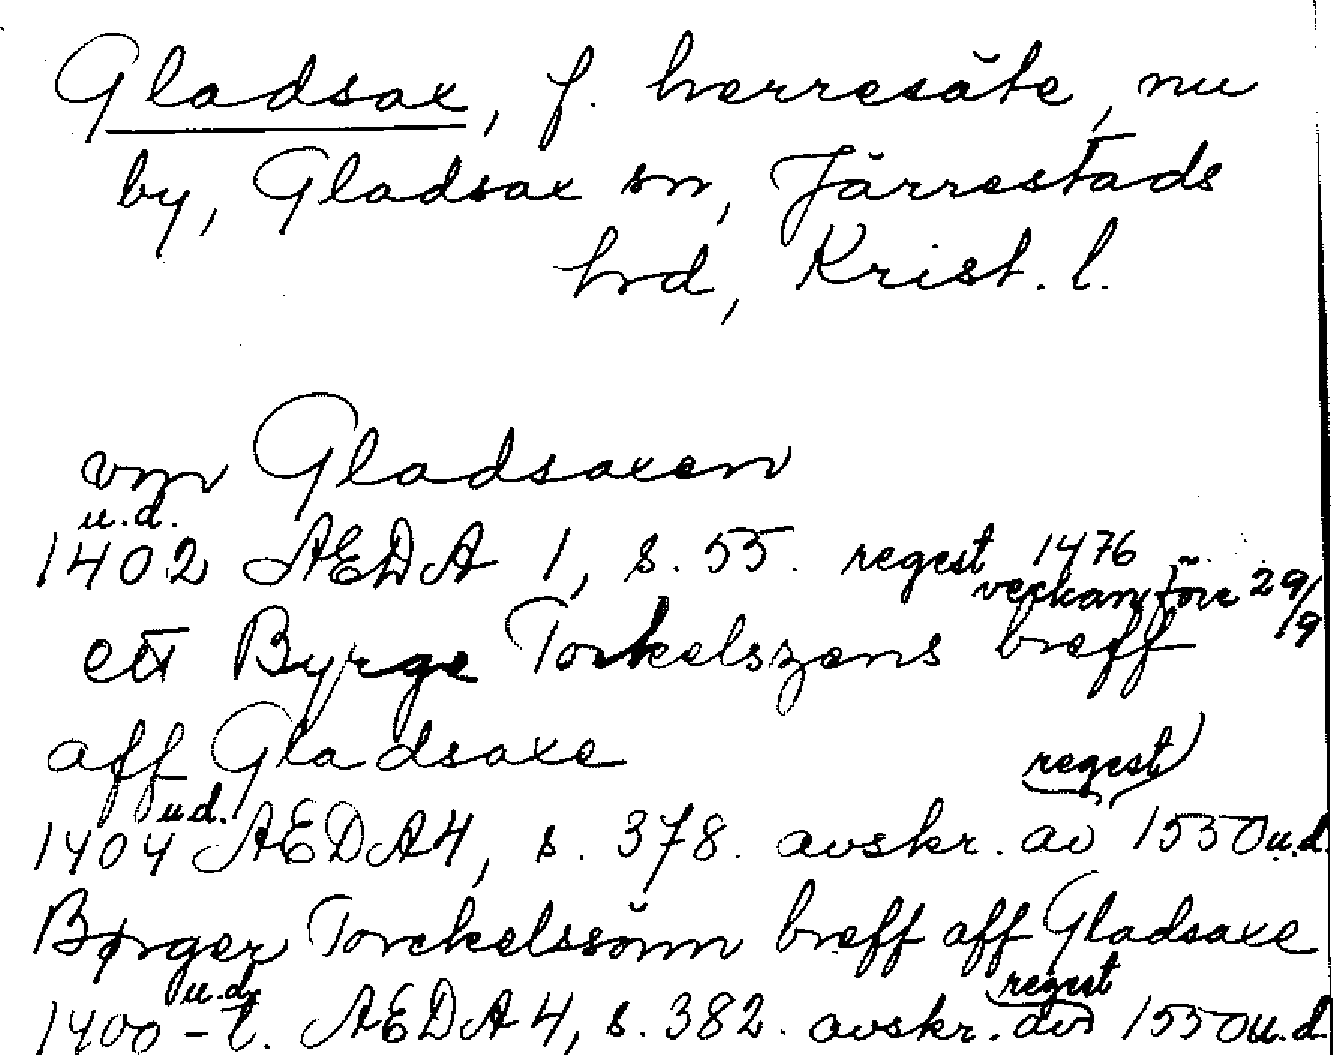 Gladsax, f. herresäte, nu
by, Gladsax sn, Järrestads
hd, Krist. l.
vm Gladsaxen
u.d.
1402 AEDA 1, s. 55. regest 1476
veckan före 29/9
ett Byrge Torkelszens breff
aff Gladsaxe
regest
u.d.
1404 AEDA 4, s. 378. avskr. av 1550 u.d.
Børger Torckelssönn breff aff Gladsaxe
u.d. regest
1400-t. AEDA 4, s. 382. avskr. av 1550 u.d.